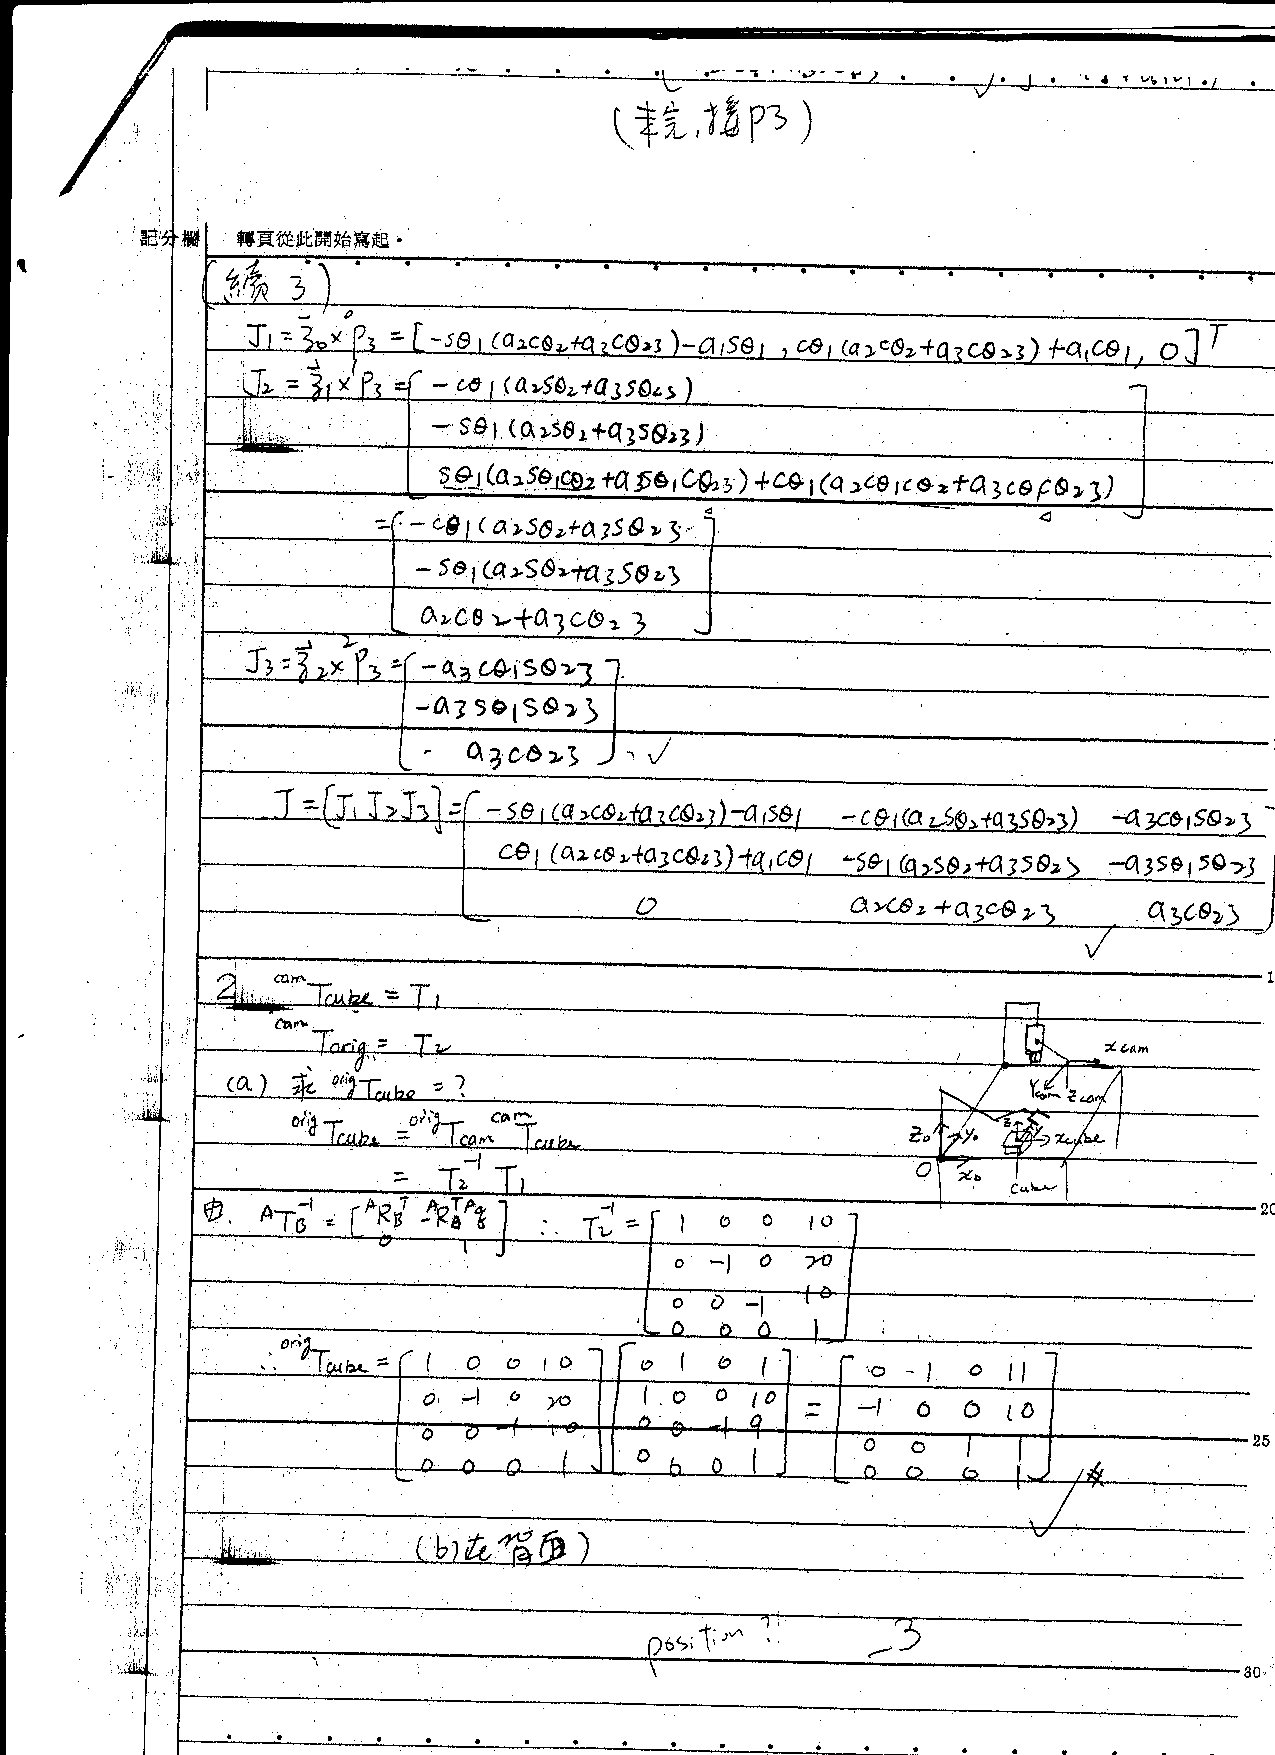 (未完,接P3)
記分欄 轉頁從此開始寫起。
(續 3)
J1 = z0 × ⁰P3 = [-sθ1(a2cθ2+a3cθ23)-a1sθ1, cθ1(a2cθ2+a3cθ23)+a1cθ1, 0]ᵀ
J2 = z1 × ¹P3 = [ -cθ1(a2sθ2+a3sθ23)
-sθ1(a2sθ2+a3sθ23)
sθ1(a2sθ1cθ2+a3sθ1cθ23)+cθ1(a2cθ1cθ2+a3cθ1cθ23) ]
= [ -cθ1(a2sθ2+a3sθ23
-sθ1(a2sθ2+a3sθ23
a2cθ2+a3cθ23 ]
J3 = z2 × ²P3 = [ -a3cθ1sθ23
-a3sθ1sθ23
a3cθ23 ] ✓
J = [J1 J2 J3] = [ -sθ1(a2cθ2+a3cθ23)-a1sθ1 -cθ1(a2sθ2+a3sθ23) -a3cθ1sθ23
cθ1(a2cθ2+a3cθ23)+a1cθ1 -sθ1(a2sθ2+a3sθ23) -a3sθ1sθ23
0 a2cθ2+a3cθ23 a3cθ23 ]
✓
2 camTcube = T1
camTorig = T2
(a) 求 origTcube = ?
origTcube = origTcam camTcube
= T2⁻¹ T1
xcam
Ycam zcam
z0 Y0 z y xcube
O x0 cube
由. ᴬTB⁻¹ = [ ᴬRBᵀ -ᴬRBᵀ ᴬq
0 1 ] ∴ T2⁻¹ = [ 1 0 0 10
0 -1 0 20
0 0 -1 10
0 0 0 1 ]
∴ origTcube = [ 1 0 0 10 ] [ 0 1 0 1 ] = [ 0 -1 0 11 ]
0 -1 0 20 1 0 0 10 -1 0 0 10
0 0 -1 10 0 0 -1 9 0 0 1 1
0 0 0 1 0 0 0 1 0 0 0 1
✓
(b)在背面)
position ?! -3
20
25
30